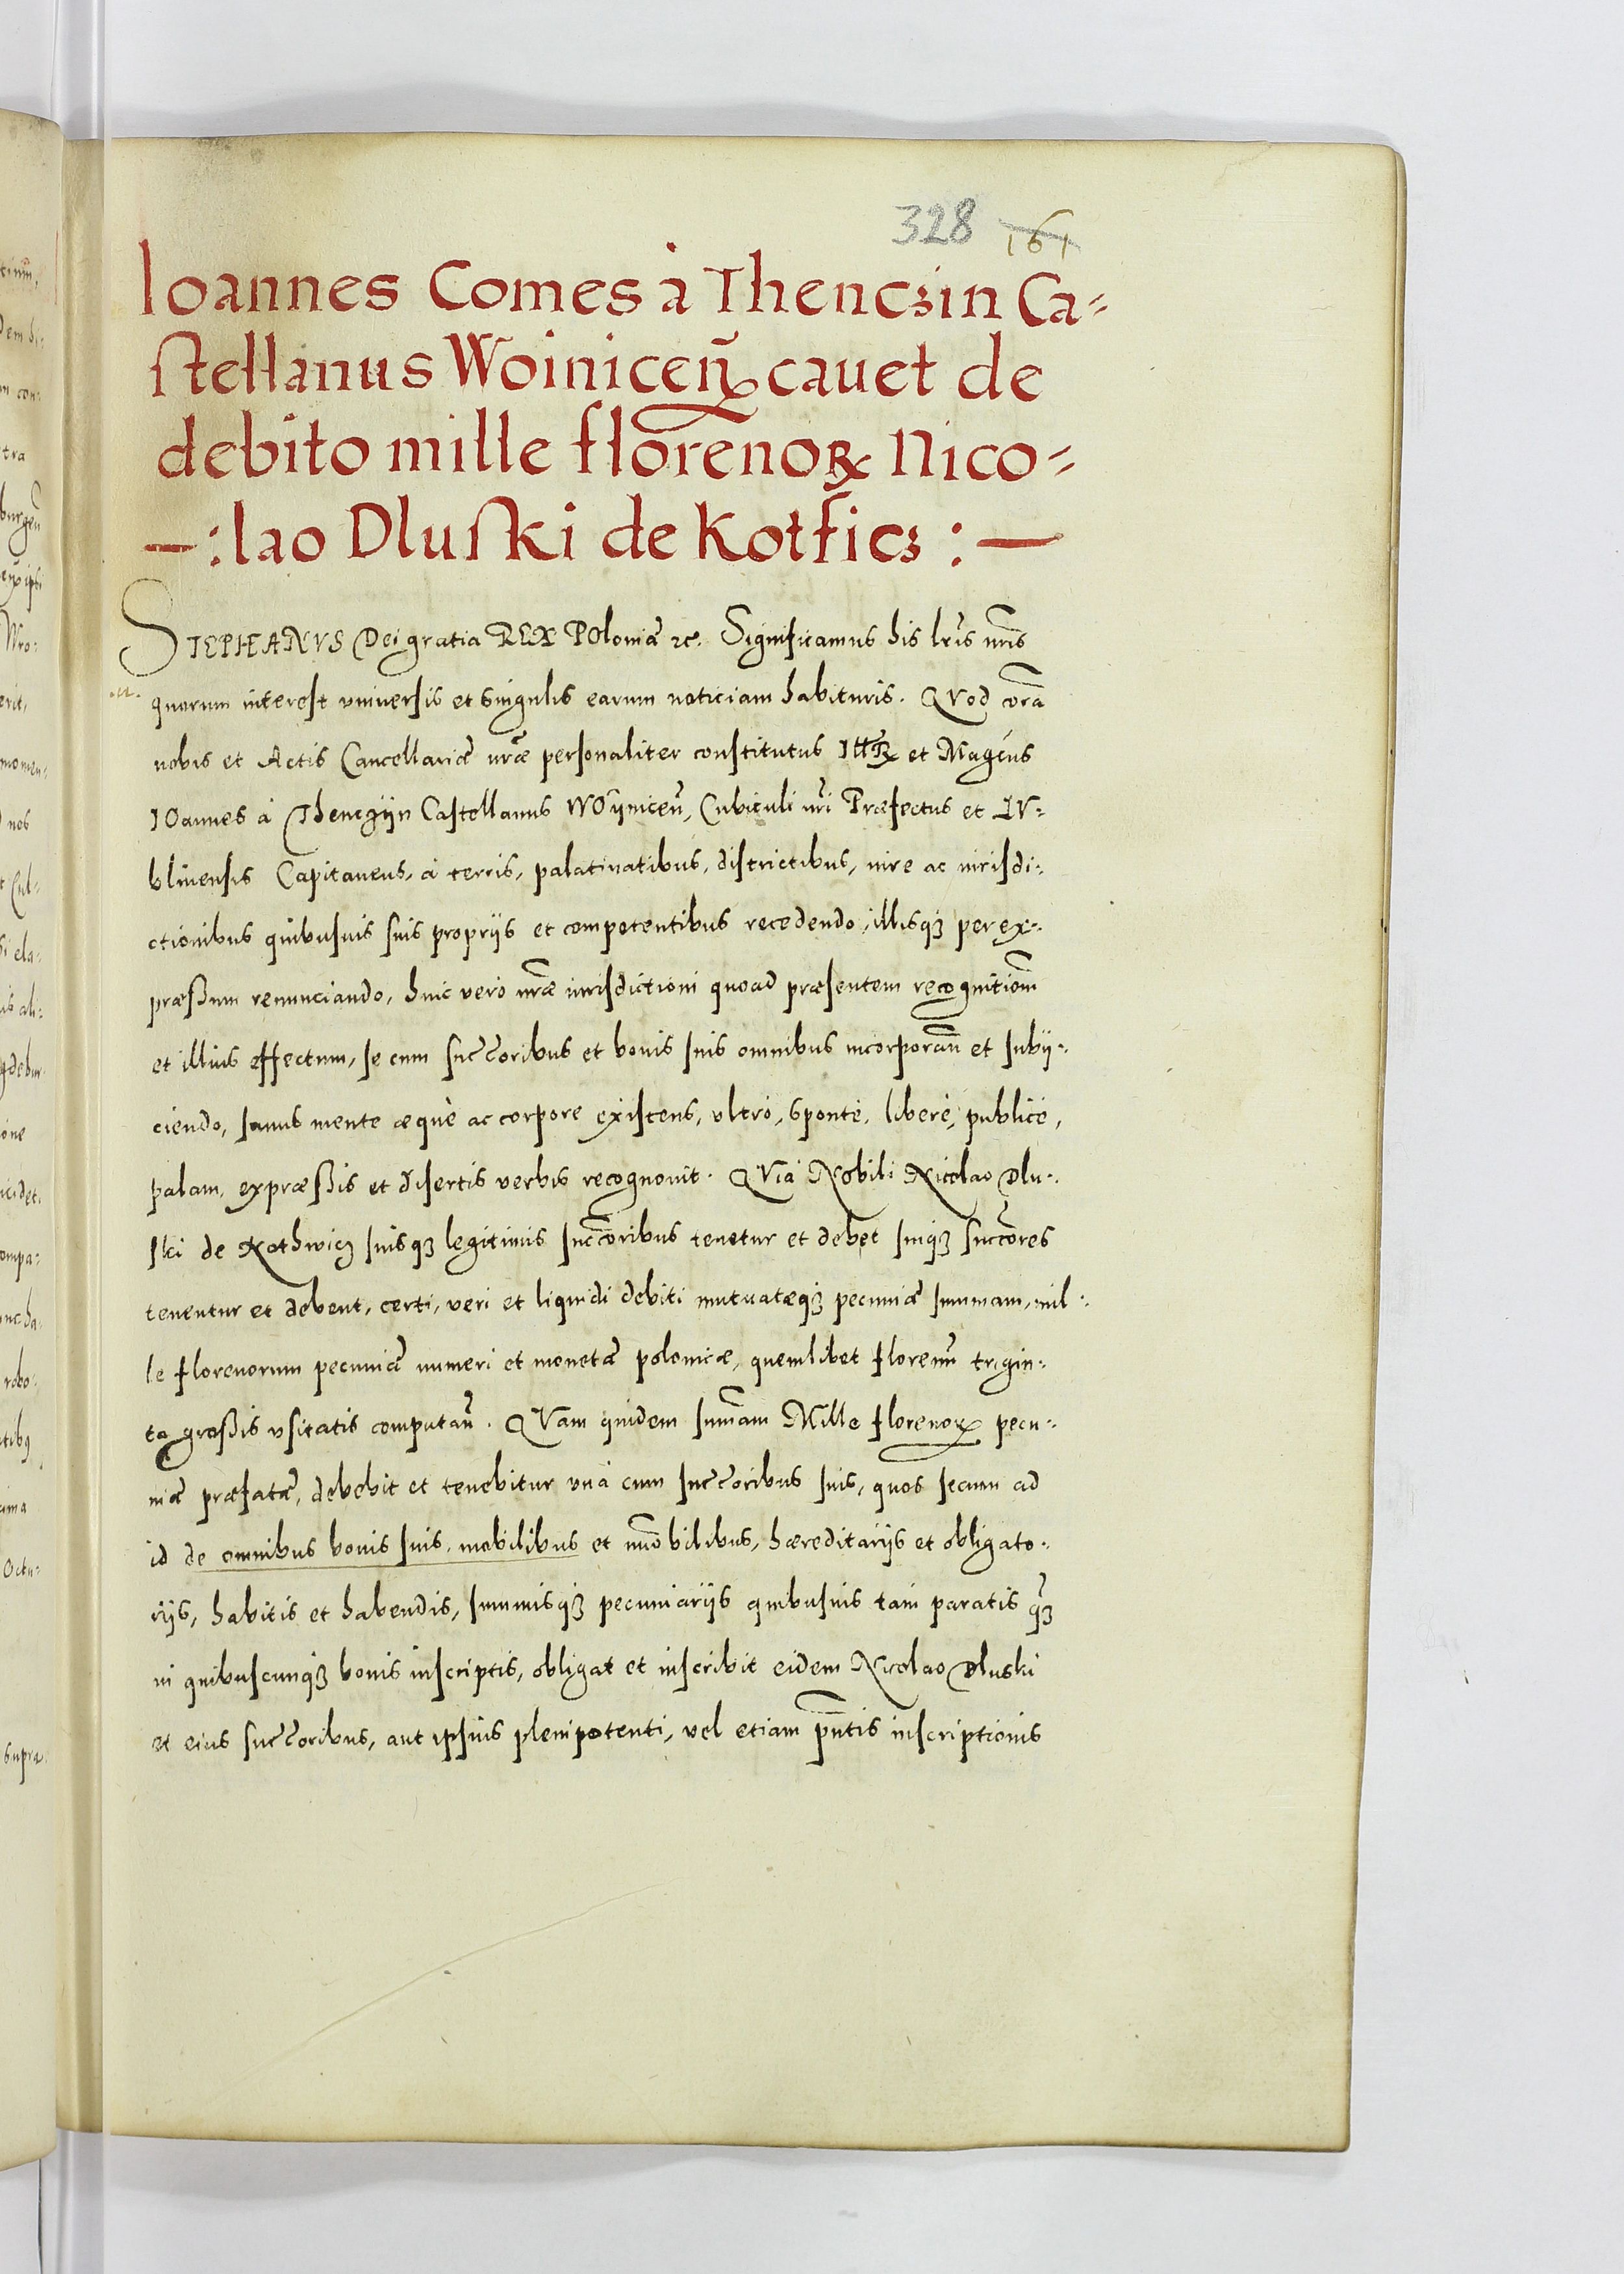 328 161
Ioannes Comes à Thencʒin Ca-
stellanus Woinicen̄ cauet de
debito mille florenoꝝ Nico-
—: lao Dluski de Kotficʒ :—
STEPHANVS Dei gratia REX POloniæ ꝛc. Significamus his lr̄is nr̄is
quorum interest vniuersis et singulis earum noticiam habituris. QVod corā
nobis et Actis Cancellariæ nr̄æ personaliter constitutus Illꝝ et Mageus
IOannes à Thencʒijn Castellanus WOÿnicen̄, Cubiculi nr̄i Præfectus et LV-
blinensis Capitaneus, à terris, palatinatibus, districtibus, iure ac iurisdi-
ctionibus quibusuis suis proprijs et competentibus recedendo, illisqꝫ per ex-
præßum renunciando, huic vero nr̄æ iurisdictioni quoad præsentem recognitiom̄
et illius effectum, se cum succ̄oribus et bonis suis omnibus incorporan̄ et subij-
ciendo, sanus mente æquè ac corpore existens, vltrò, spontè, liberè, publicè,
palam, expræßis et disertis verbis recognouit. QVia Nobili Nicolao Dlu-
ski de Kothwicʒ suisqꝫ legitimis succ̄oribus tenetur et debet suiqꝫ succ̄ores
tenentur et debent, certi, veri et liquidi debiti mutuatæqꝫ pecuniæ summam, mil-
le florenorum pecuniæ numeri et monetæ polonicæ, quemlibet florenū trigin-
ta großis vsitatis computan̄. QVam quidem sum̄am Mille florenoꝝ pecu-
niæ præfatæ, debebit et tenebitur vnà cum succ̄oribus suis, quos secum ad
id de omnibus bonis suis, mobilibus et im̄obilibus, hæreditarijs et obligato-
rijs, habitis et habendis, summisqꝫ pecuniarijs quibusuis tam paratis qꝫ̄
in quibuscunqꝫ bonis inscriptis, obligat et inscribit eidem Nicolao Dluski
et eius succ̄oribus, aut ipsius plenipotenti, vel etiam pn̄tis inscriptionis